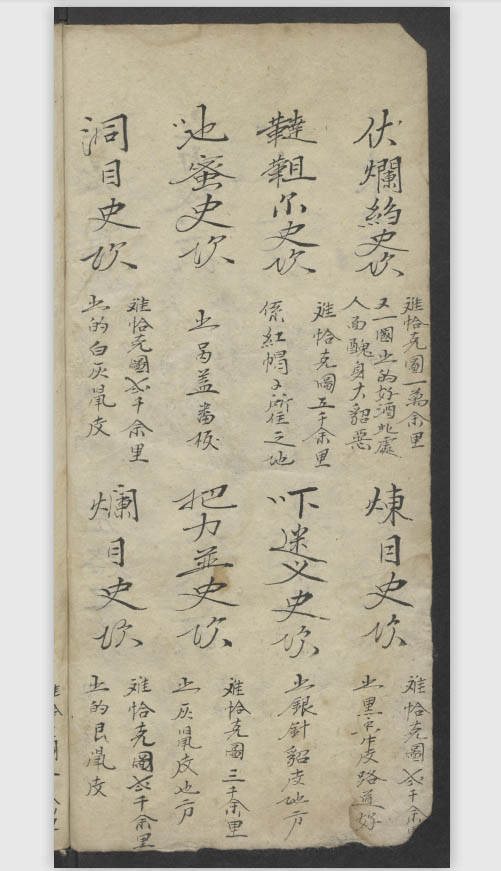 伏爛約史坎
难恰克圖一萬余里
又一國出的好酒此處
人面醜身大貂惡
煉目史坎
难恰克圖弍千余里
出黑牛皮路道好
韃靼尔史坎
难恰克圖五千余里
係紅帽子所住之地
吓迷义史坎
出銀針貂皮地方
蜜史坎
出曷盖番板
把力並史坎
难恰克圖三千余里
出灰鼠皮地方
洞目史坎
难恰克圖弍千余里
出的白灰鼠皮
爛目史坎
难恰克圖弍千余里
出的艮鼠皮